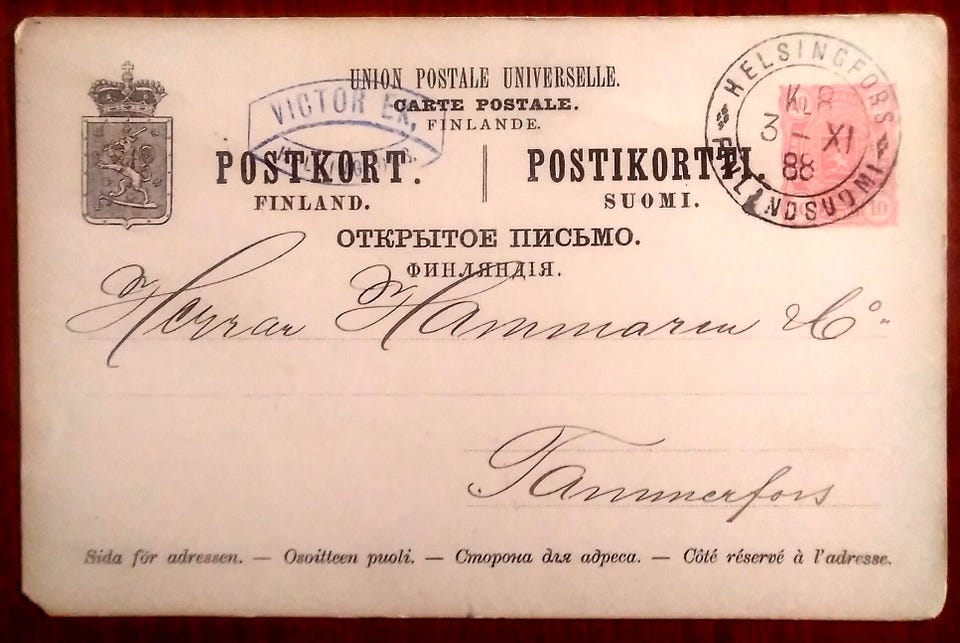 UNION POSTALE UNIVERSELLE.
CARTE POSTALE.
FINLANDE.
VICTOR EK,
POSTKORT. POSTIKORTTI.
FINLAND. SUOMI.
ОТКРЫТОЕ ПИСЬМО.
ФИНЛЯНДІЯ.
HELSINGFORS
K 8
3 – XI
88
FINLANDSUOMI
10
Herrar Hammaren & Co
Tammerfors
Sida för adressen. — Osoitteen puoli. — Сторона для адреса. — Côté réservé à l'adresse.